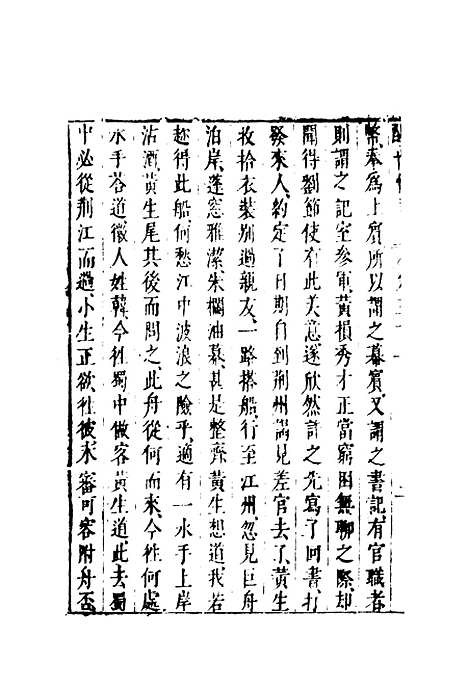 醒世恒言
幣奉爲上賓所以謂之幕賓又謂之書記有官職者
則謂之記室參軍黃損秀才正當窮困無聊之際却
聞得劉節使有此美意遂欣然許之先寫了回書打
發來人約定了日期自到荆州謁見差官去了黃生
收拾衣裝別過親友一路搭船行至江州忽見巨舟
泊岸篷窓雅潔朱欄油幕甚是整齊黃生想道我若
趂得此船何愁江中波浪之險乎適有一水手上岸
沽酒黃生尾其後而問之此舟從何而來今徃何處
水手荅道徽人姓韓今徃蜀中做客黃生道此去蜀
中必從荆江而過小生正欲徃彼未審可容附舟否